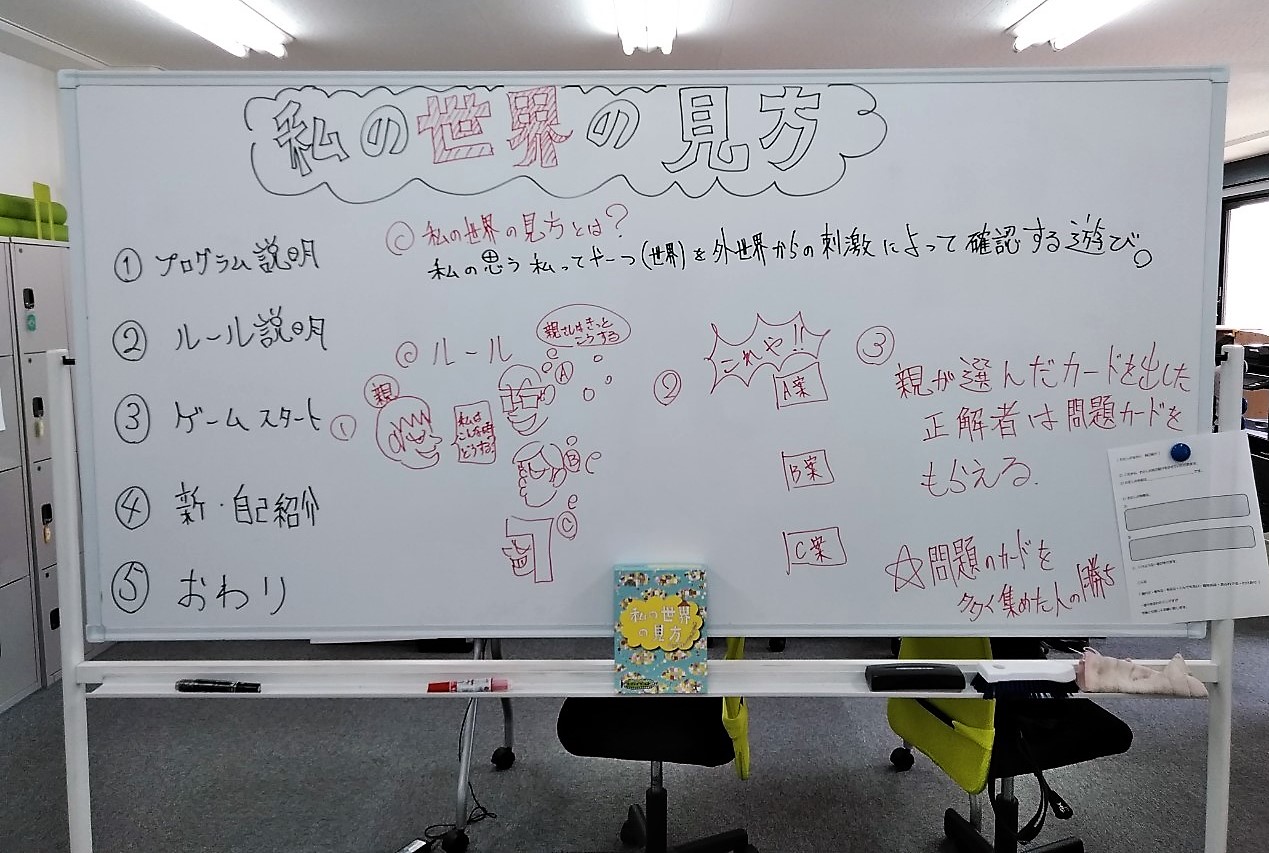 私の世界の見方
① プログラム説明
② ルール説明
③ ゲームスタート
④ 新・自己紹介
⑤ おわり
◎ 私の世界の見方とは?
私の思う私ってナーっ(世界)を外世界からの刺激によって確認する遊び。
◎ ルール
①
親
私は
こんな時
どうする?
親さんはきっと
こうする
A
B
C
②
これや!!
A案
B案
C案
③
親が選んだカードを出した
正解者は問題カードを
もらえる.
☆問題のカードを
多く集めた人の勝ち
私の世界
の見方